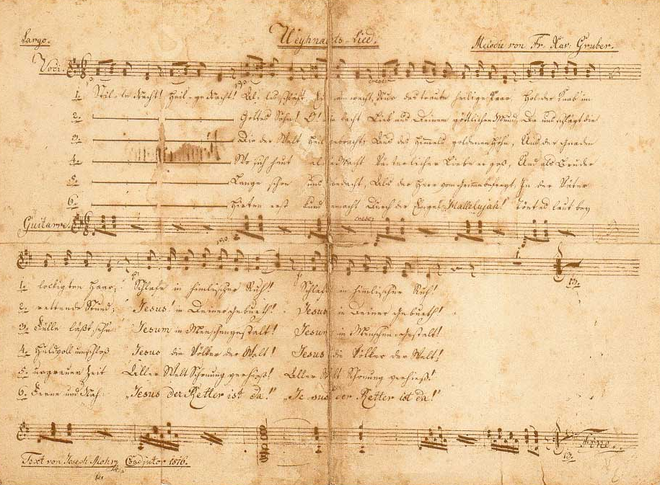 Largo. Weyhnachts-Lied. Melodie von Fr. Xav. Gruber.
1. Stille Nacht! Heilige Nacht! Alles schläft
2. Gottes Sohn! O!
3. Die der Welt Heil gebracht; Aus des Himmels goldenen Höhn,
4. Wo sich heut alle Macht Väterlicher Liebe ergoß, Und als Bruder
5. Lange schon uns bedacht, Als der Herr vom Grimme befreyt, In der Väter
6. Hirten erst kund gemacht Durch der Engel "Hallelujah! Tönt es laut bey
Guitarre
1. lockigten Haar, Schlafe in himmlischer Ruh! Schlafe in himmlischer Ruh!
2. rettende Stund, Jesus! in Deiner Geburth! Jesus! in Deiner Geburth!
3. Fülle läßt sehn Jesum in Menschengestalt! Jesum in Menschengestalt!
4. huldvoll umschloß Jesus die Völker der Welt! Jesus die Völker der Welt!
5. urgrauer Zeit Aller Welt Schonung verhieß! Aller Welt Schonung verhieß!
6. Ferne und Nah "Jesus der Retter ist da!" "Jesus der Retter ist da!"
Text von Joseph Mohr Coadjutor 1816.